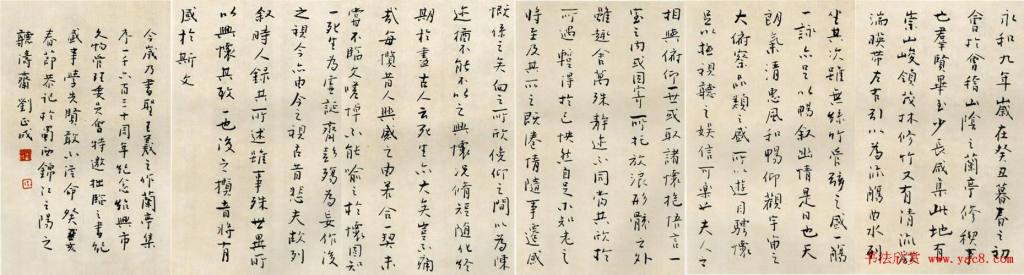 永和九年歲在癸丑暮春之初
會於會稽山陰之蘭亭修稧事
也羣賢畢至少長咸集此地有
崇山峻領茂林修竹又有清流激
湍暎帶左右引以為流觴曲水列
坐其次雖無絲竹管弦之盛一觴
一詠亦足以暢叙幽情是日也天
朗氣清惠風和暢仰觀宇宙之
大俯察品類之盛所以遊目騁懷
足以極視聽之娛信可樂也夫人之
相與俯仰一世或取諸懷抱悟言一
室之內或因寄所託放浪形骸之外
雖趣舍萬殊靜躁不同當其欣於
所遇蹔得於己快然自足不知老之
將至及其所之既惓情隨事遷感
慨係之矣向之所欣俛仰之間以為陳
迹猶不能不以之興懷況修短隨化終
期於盡古人云死生亦大矣豈不痛
哉每攬昔人興感之由若合一契未
嘗不臨文嗟悼不能喻之於懷固知
一死生為虛誕齊彭殤為妄作後
之視今亦由今之視昔悲夫故列
叙時人錄其所述雖事殊世異所
以興懷其致一也後之攬者將有
感於斯文
今歲乃書聖王羲之作蘭亭集
序一千六百三十周年紀念紹興市
文物管理委員會特邀拙臨之書紀
盛事學失敢不從命癸亥
春節恭記於蜀西錦江之陽之
聽濤齋劉正成
书法欣赏 www.yac8.com